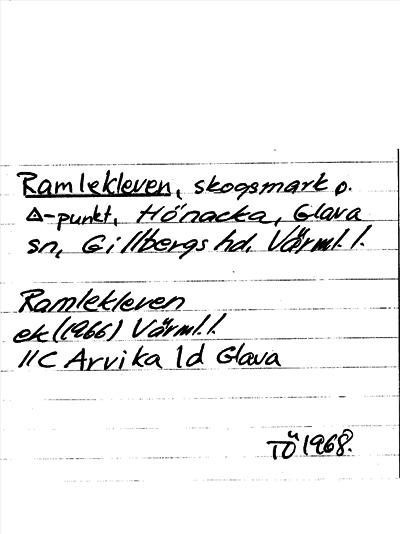 Ramlekleven, skogsmark o.
∆-punkt, Hönacka, Glava
sn, Gillbergs hd, Värml. l.
Ramlekleven
ek (1966) Värml. l.
11C Arvika 1d Glava
TÖ 1968.